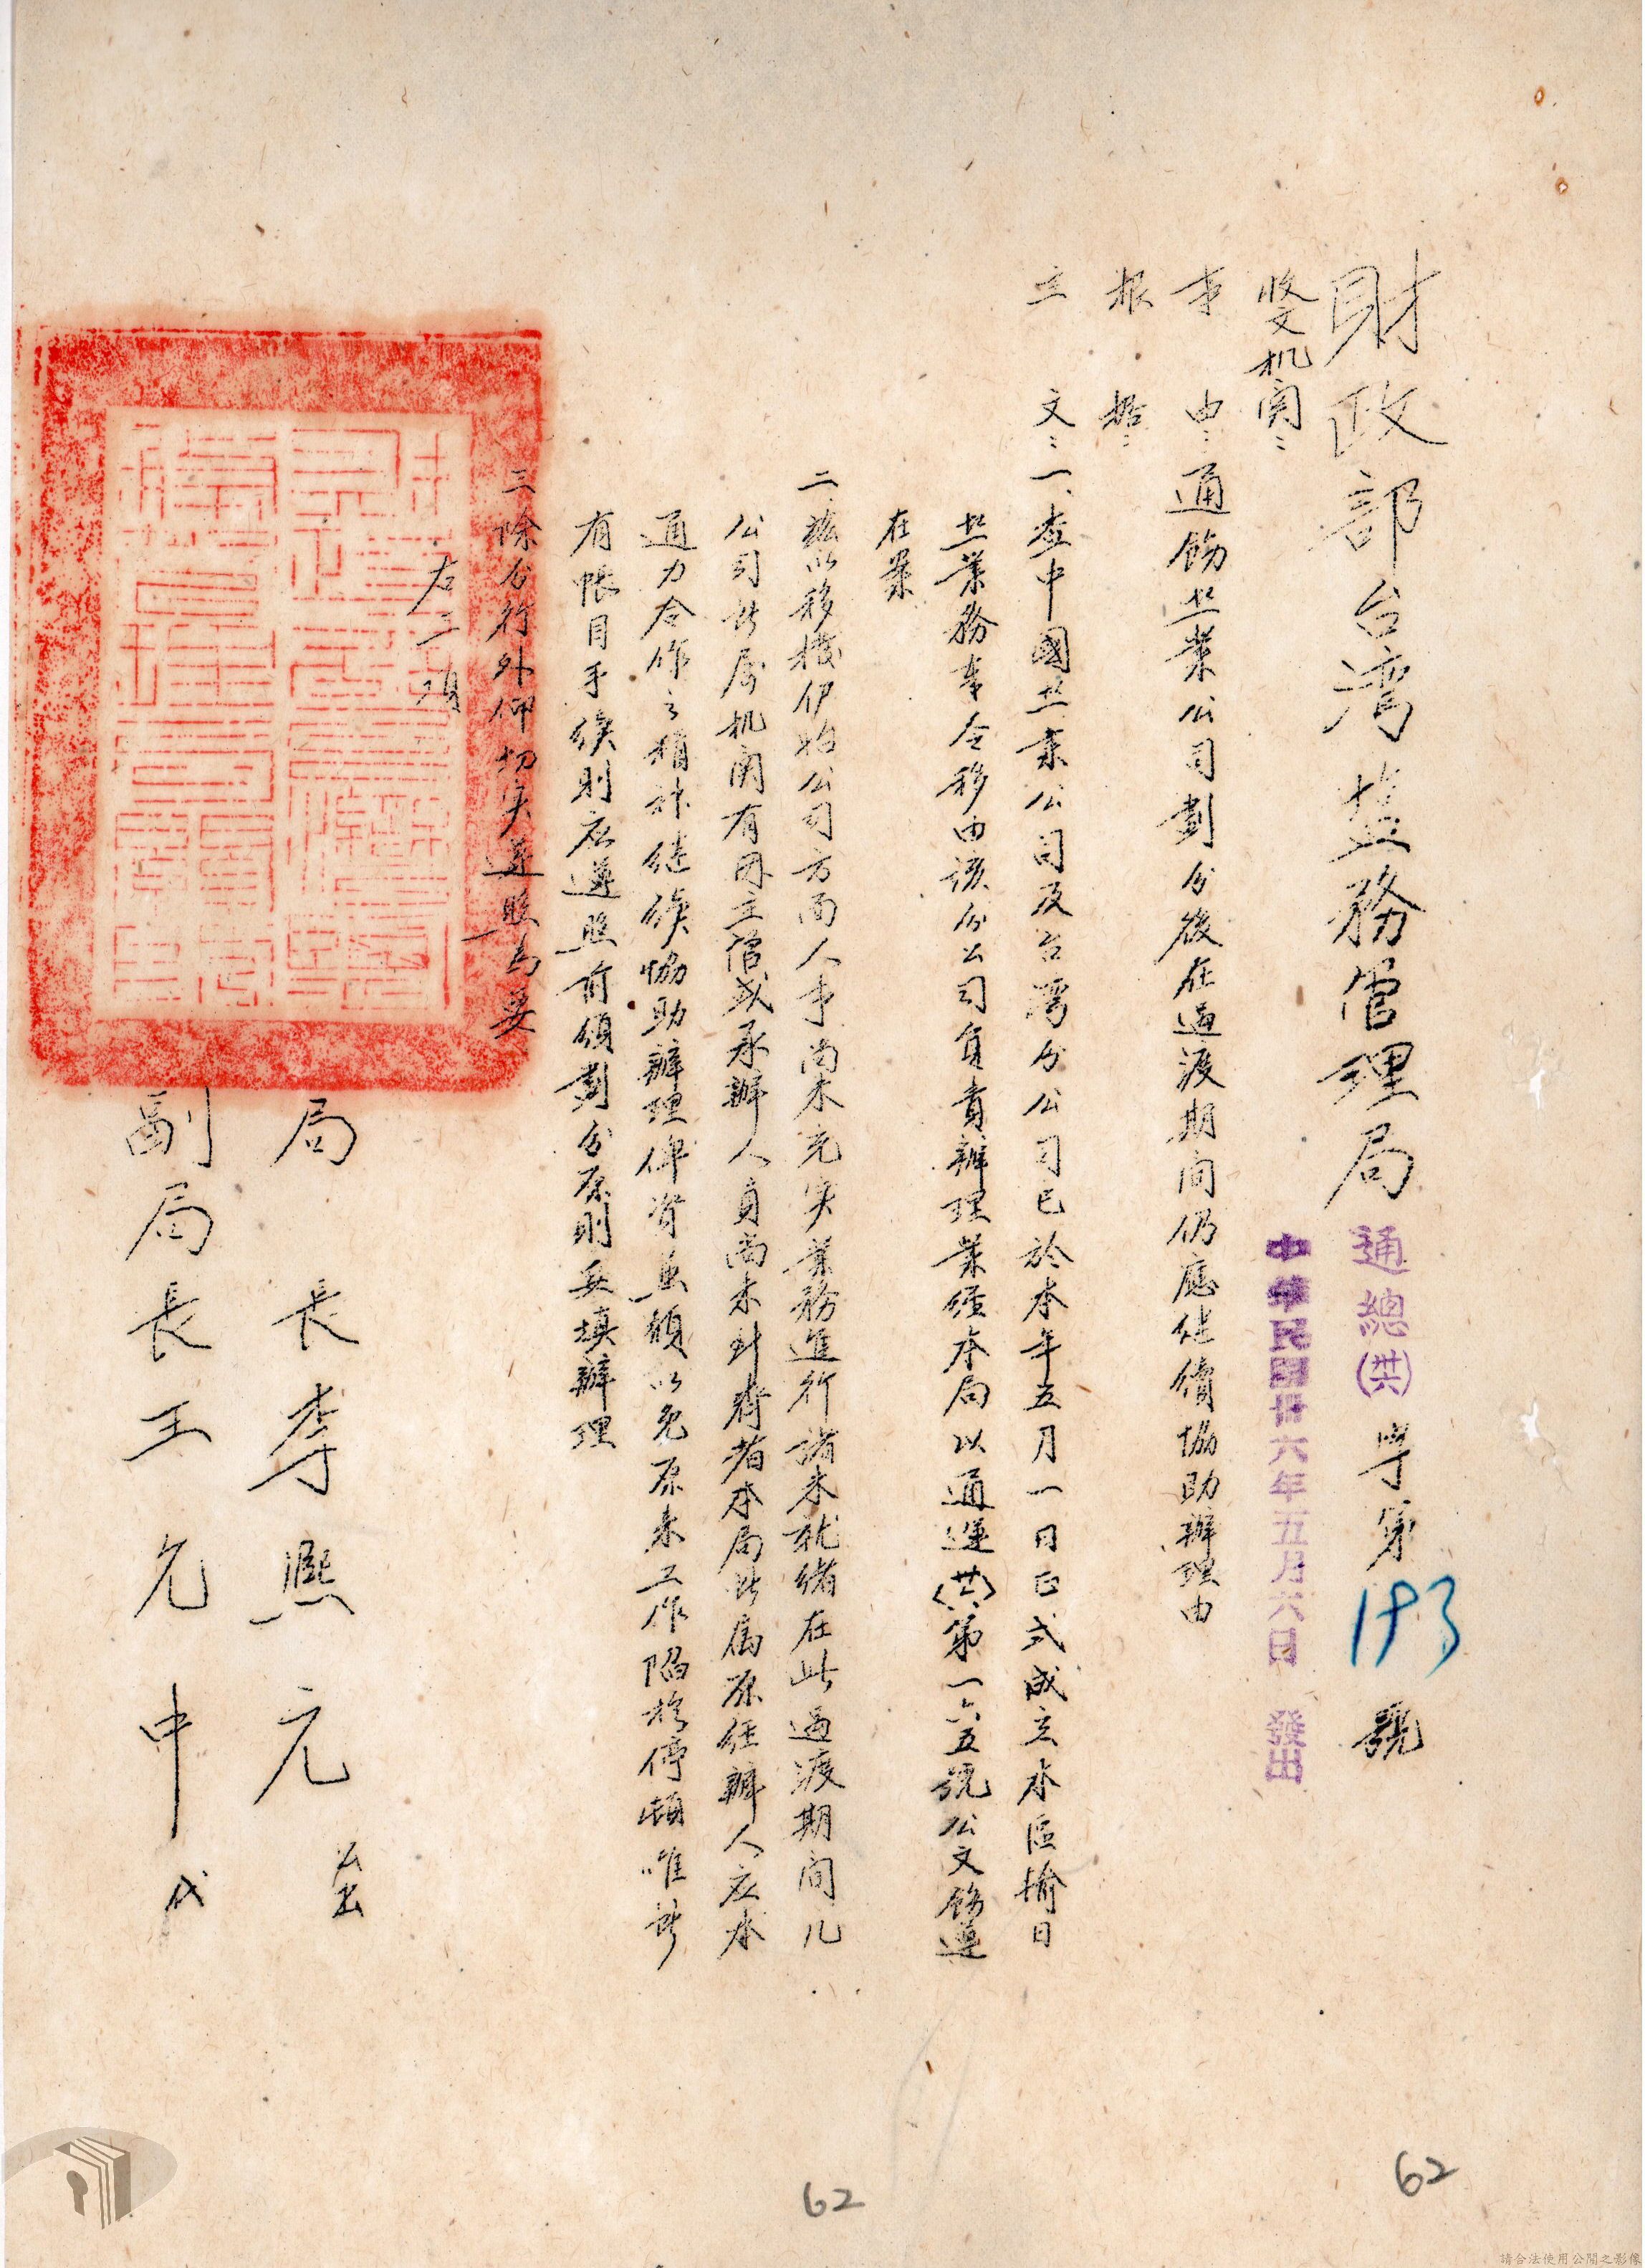 財政部台湾盐務管理局 通總(共)字第193號
中華民國卅六年五月六日 發出
收文机関：
事 由：通飭盐業公司劃分後在過渡期间仍應继續協助辦理由
根 据：
主 文：一、查中國盐業公司及台湾分公司已於本年五月一日正式成立本區揄日
盐業務奉令移由该分公司負責辦理業經本局以通運(共)第一六五號公文飭遵
在案
二、兹以移接伊始公司方面人事尚未充实業務進行諸未就緒在此過渡期间凡
公司所属机関有因主管或承辦人員尚未到齐者本局所属原经辦人应本
通力合作之精神继续协助辦理俾資兼顧以免原来工作陷於停頓唯所
有帳目手续則应遵照前頒劃分原則妥填辦理
三、除分行外仰切实遵照為要
右三項
局 長 李熙元 公出
副局長 王允中 代
62
62
請合法使用公開之影像